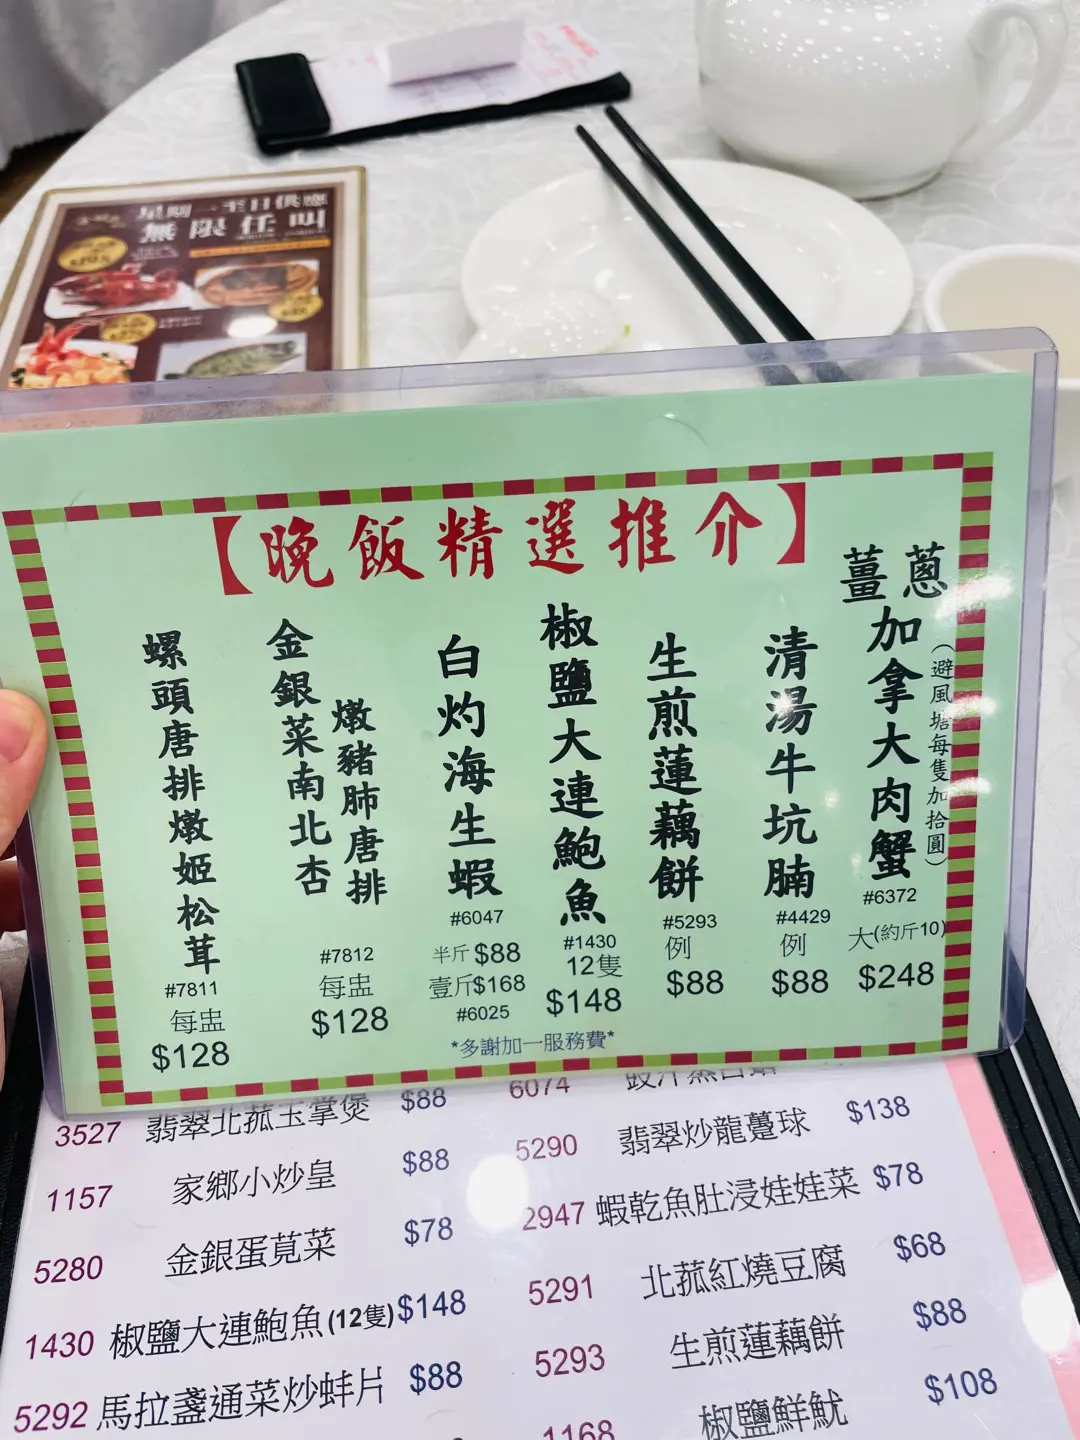 無限任叫
【晚飯精選推介】
薑蔥
加拿大肉蟹
(避風塘每隻加拾圓)
#6372
大(約斤10)
$248
清湯牛坑腩
#4429
例
$88
生煎蓮藕餅
#5293
例
$88
椒鹽大連鮑魚
#1430
12隻
$148
白灼海生蝦
#6047
半斤$88
壹斤$168
#6025
金銀菜南北杏
燉豬肺唐排
#7812
每盅
$128
螺頭唐排燉姬松茸
#7811
每盅
$128
*多謝加一服務費*
3527 翡翠北菰玉掌煲 $88
1157 家鄉小炒皇 $88
5280 金銀蛋莧菜 $78
1430 椒鹽大連鮑魚(12隻) $148
5292 馬拉盞通菜炒蚌片 $88
6074
5290 翡翠炒龍躉球 $138
2947 蝦乾魚肚浸娃娃菜 $78
5291 北菰紅燒豆腐 $68
5293 生煎蓮藕餅 $88
1168 椒鹽鮮魷 $108